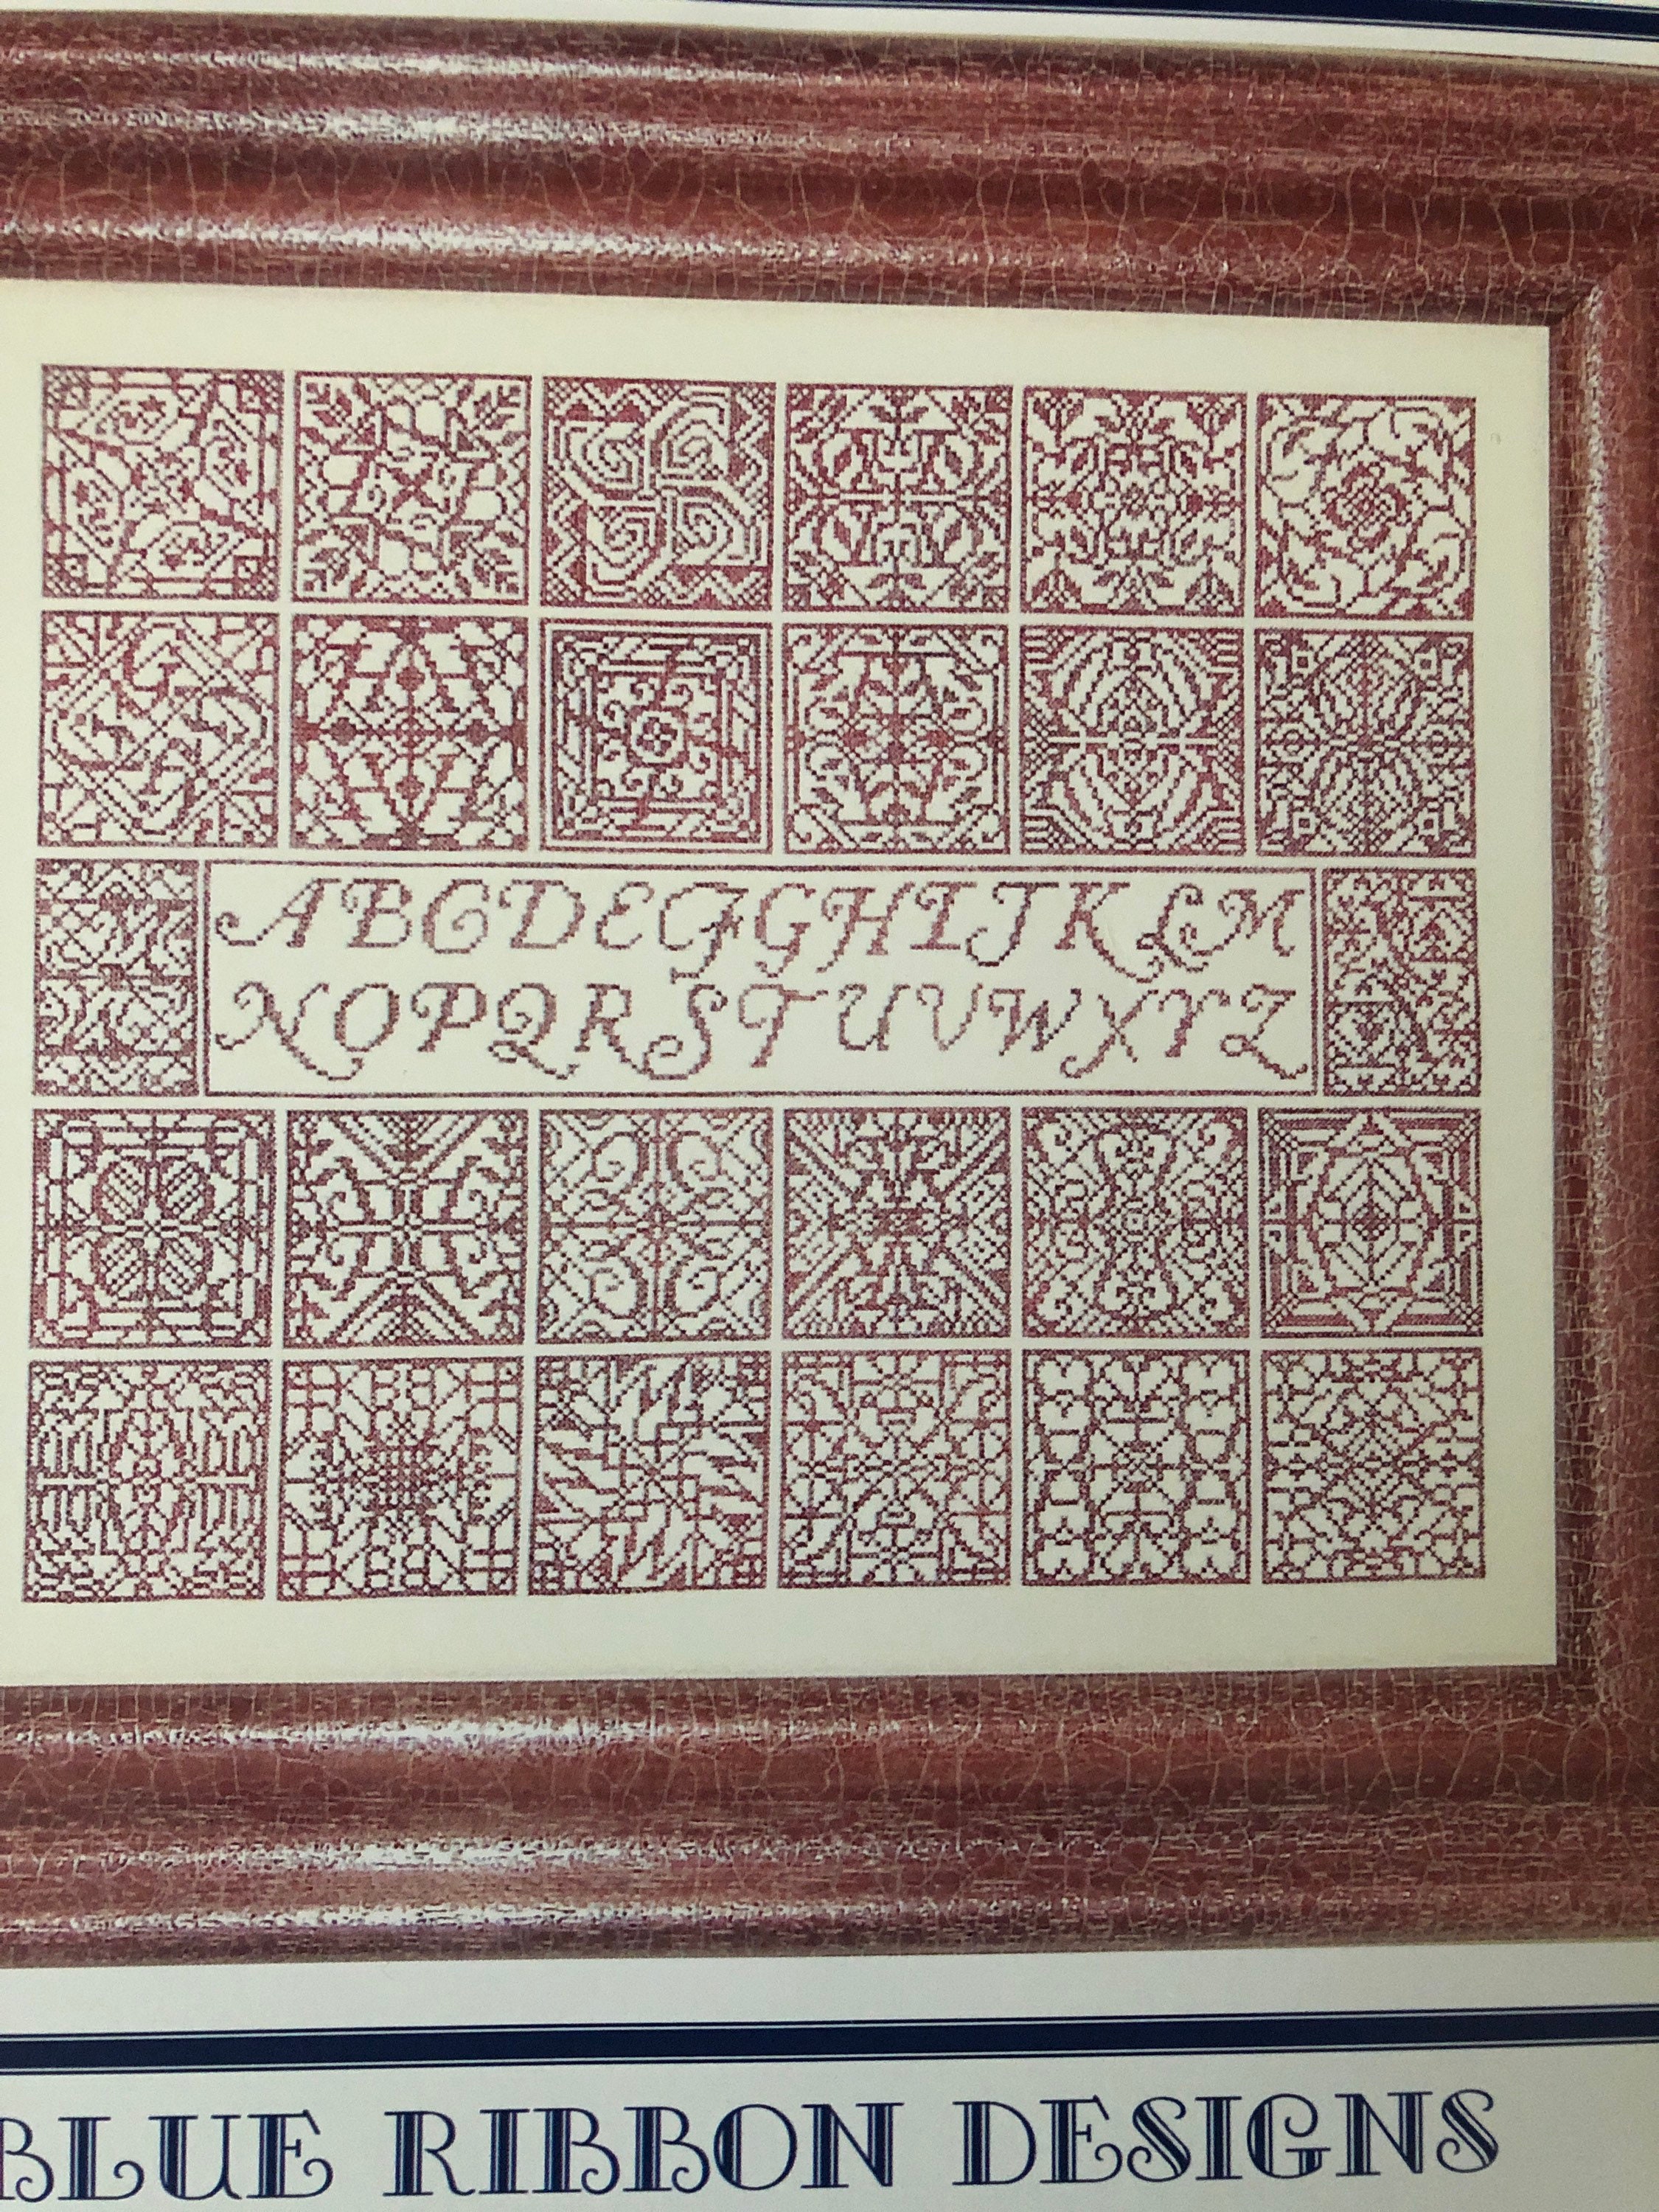 ABCDEFGHIJKLM
NOPQRSTUVWXYZ
BLUE RIBBON DESIGNS